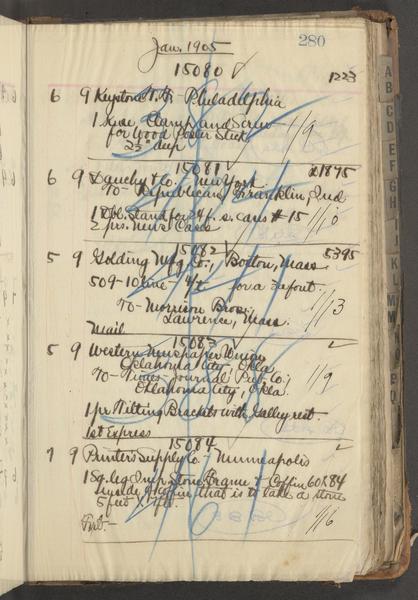 280
Jan. 1905
15080 ✓
1223
6 9 Keystone T. F. Philadelphia
1 Clamp and Screw
for Wood Poster Stick
1/9
15081
x1895
6 9 Dauchy & Co. New York
To - Republican, Franklin, Ind
1 Dbl. Stand for 24 f. s. cases # 15
1/10
2 prs. News Cases
15082 ✓
5395
5 9 Golding Mfg Co., Boston, Mass
509-10 for a
To - Morrison Bros.
1/13
Lawrence, Mass.
Mail
15083 ✓
5 9 Western Newspaper Union
Oklahoma City, Okla
To - Times-Journal Pub. Co.,
1/9
Oklahoma City, Okla.
1 pr Tilting Brackets with Galley rest
1st Express
15084
7 9 Printers Supply Co. Minneapolis
1 Sq. leg Imp. Stone Frame & Coffin 60x84
Inside of coffin that is to take a stone
5 feet
Frt.-
1/16
A
B
C
D
E
F
G
H
I
J
K
L
M